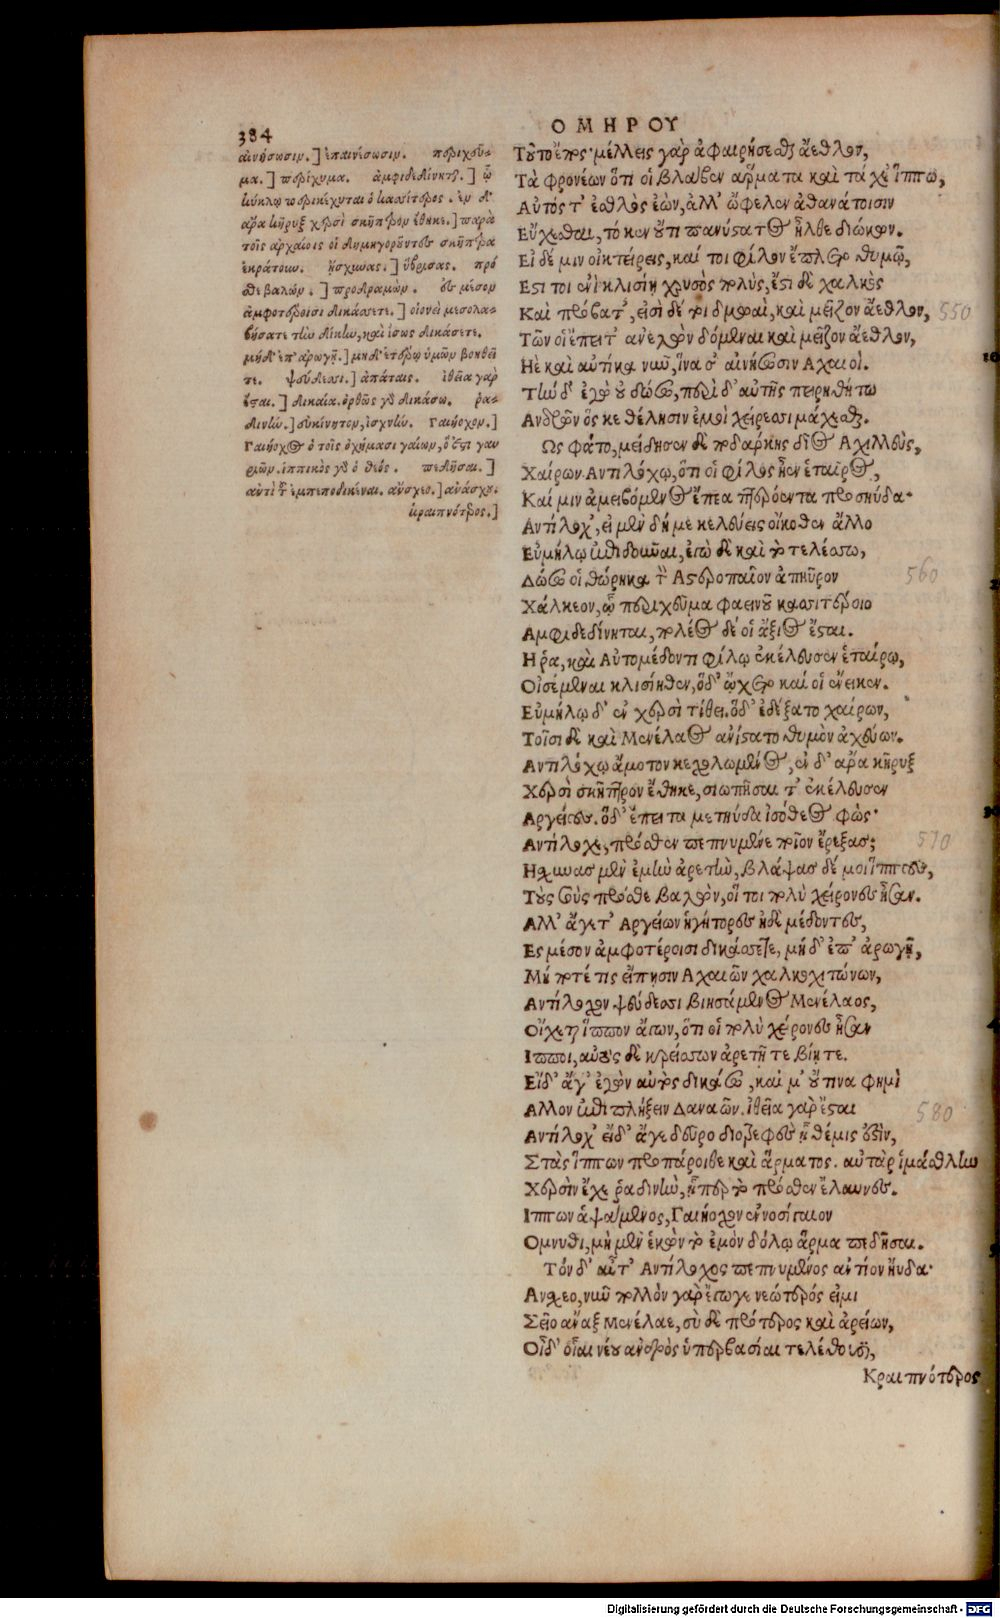 384
ΟΜΗΡΟΥ
αἰνήσωσιν.] ἐπαινέσωσιν. περιχεῦ-
μα.] περίχυμα. ἀμφιδεδίνηται.] ᾧ
κύκλῳ περικέχυται ὁ κασσίτερος. ἐν δ'
ἄρα κῆρυξ χερσὶ σκῆπτρον ἔθηκε.] παρὰ
τοῖς ἀρχαίοις οἱ δημηγοροῦντες σκῆπτρα
ἐκράτουν. ᾔσχυνας.] ὕβρισας. πρό
σθε βαλών.] προδραμών. ἐς μέσον
ἀμφοτέροισι δικάσετε.] οἱονεὶ μεσολα-
βήσατε τὴν δίκην, καὶ ἴσως δικάσετε.
μηδ' ἐπ' ἀρωγῇ.] μηδ' ἑτέρῳ ὑμῶν βοηθεῖ
τε. ψεύδεσσι.] ἀπάταις. ἰθεῖα γὰρ
ἔσται.] δικαία. ὀρθῶς γὰρ δικάσω. ῥα-
δινήν.] εὐκίνητον, ἰσχνήν. Γαιήοχον.]
Γαιήοχος ὁ τοῖς ὀχήμασι γαίων, ὅ ἐστι γαυ
ριῶν. ἱππικὸς γὰρ ὁ θεός. πεδῆσαι.]
ἀντὶ τοῦ ἐμπεποδικέναι. ἄνσχεο.] ἀνάσχου.
κραιπνότερος.]
Τοῦτο ἔπος· μέλλεις γὰρ ἀφαιρήσεσθαι ἄεθλον,
Τὰ φρονέων ὅτι οἱ βλάβεν ἅρματα καὶ ταχέ' ἵππω,
Αὐτός τ' ἐσθλὸς ἐὼν, ἀλλ' ὤφελεν ἀθανάτοισιν
Εὔχεσθαι, τό κεν οὔτι πανύστατος ἦλθε διώκων.
Εἰ δέ μιν οἰκτείρεις, καί τοι φίλον ἔπλετο θυμῷ,
Εστι τοι ἐν κλισίῃ χρυσὸς πολὺς, ἔστι δὲ χαλκὸς
Καὶ πρόβατ', εἰσὶ δέ τοι δμωαὶ, καὶ μεῖζον ἄεθλον, 550
Τῶν οἱ ἔπειτ' ἀνελὼν δόμεναι καὶ μεῖζον ἄεθλον,
Ηὲ καὶ αὐτίκα νῦν, ἵνα σ' αἰνήσωσιν Αχαιοί.
Τὴν δ' ἐγὼ οὐ δώσω, περὶ δ' αὐτῆς πειρηθήτω
Ανδρῶν ὅς κε θέλησιν ἐμοὶ χείρεσσι μάχεσθαι.
Ως φάτο, μείδησεν δὲ ποδάρκης δῖος Αχιλλεὺς,
Χαίρων Αντιλόχῳ, ὅτι οἱ φίλος ἦεν ἑταῖρος,
Καί μιν ἀμειβόμενος ἔπεα πτερόεντα προσηύδα·
Αντίλοχ', εἰ μὲν δή με κελεύεις οἴκοθεν ἄλλο
Εὐμήλῳ ἐπιδοῦναι, ἐγὼ δὲ καὶ τὸ τελέσσω,
Δώσω οἱ θώρηκα τὸν Αστεροπαῖον ἀπηύρον 560
Χάλκεον, ᾧ περιχεῦμα φαεινοῦ κασσιτέροιο
Αμφιδεδίνηται, πολέος δέ οἱ ἄξιος ἔσται.
Η ῥα, καὶ Αὐτομέδοντι φίλῳ ἐκέλευσεν ἑταίρῳ,
Οἰσέμεναι κλισίηθεν, ὅδ' ᾤχετο καί οἱ ἔνεικεν.
Εὐμήλῳ δ' ἐν χερσὶ τίθει. ὅδ' ἐδέξατο χαίρων,
Τοῖσι δὲ καὶ Μενέλαος ἀνίστατο θυμὸν ἀχεύων.
Αντιλόχῳ ἄμοτον κεχολωμένος, ἐν δ' ἄρα κῆρυξ
Χερσὶ σκῆπτρον ἔθηκε, σιωπῆσαι τ' ἐκέλευσεν
Αργείους. ὅδ' ἔπειτα μετηύδα ἰσόθεος φώς·
Αντίλοχε, πρόσθεν πεπνυμένε ποῖον ἔρεξας; 570
Ηισχυνας μὲν ἐμὴν ἀρετὴν, βλάψας δέ μοι ἵππους,
Τοὺς σοὺς πρόσθε βαλὼν, οἵ τοι πολὺ χείρονες ἦσαν.
Αλλ' ἄγετ' Αργείων ἡγήτορες ἠδὲ μέδοντες,
Ες μέσον ἀμφοτέροισι δικάσσετε, μηδ' ἐπ' ἀρωγῇ,
Μή ποτέ τις εἴπῃσιν Αχαιῶν χαλκοχιτώνων,
Αντίλοχον ψεύδεσσι βιησάμενος Μενέλαος,
Οἴχεται ἵππον ἄγων, ὅτι οἱ πολὺ χείρονες ἦσαν
Ιπποι, αὐτὸς δὲ κρείσσων ἀρετῇ τε βίῃ τε.
Εἰ δ' ἄγ' ἐγὼν αὐτὸς δικάσω, καί μ' οὔτινα φημὶ
Αλλον ἐπιπλήξειν Δαναῶν. ἰθεῖα γὰρ ἔσται 580
Αντίλοχ' εἰ δ' ἄγε δεῦρο διοτρεφὲς ἣ θέμις ἐστὶν,
Στὰς ἵππων προπάροιθε καὶ ἅρματος. αὐτὰρ ἱμάσθλην
Χερσὶν ἔχε ῥαδινὴν, ᾗπερ τὸ πρόσθεν ἔλαυνες.
Ιππων ἁψάμενος, Γαιήοχον ἐννοσίγαιον
Ομνυθι, μὴ μὲν ἑκὼν τὸ ἐμὸν δόλῳ ἅρμα πεδῆσαι.
Τὸν δ' αὖτ' Αντίλοχος πεπνυμένος ἀντίον ηὔδα·
Ανσχεο, νῦν πολλὸν γὰρ ἔγωγε νεώτερός εἰμι
Σεῖο ἄναξ Μενέλαε, σὺ δὲ πρότερος καὶ ἀρείων,
Οἶδ' οἷαι νέου ἀνδρὸς ὑπερβασίαι τελέθουσι,
Κραιπνότερος
Digitalisierung gefördert durch die Deutsche Forschungsgemeinschaft - DFG